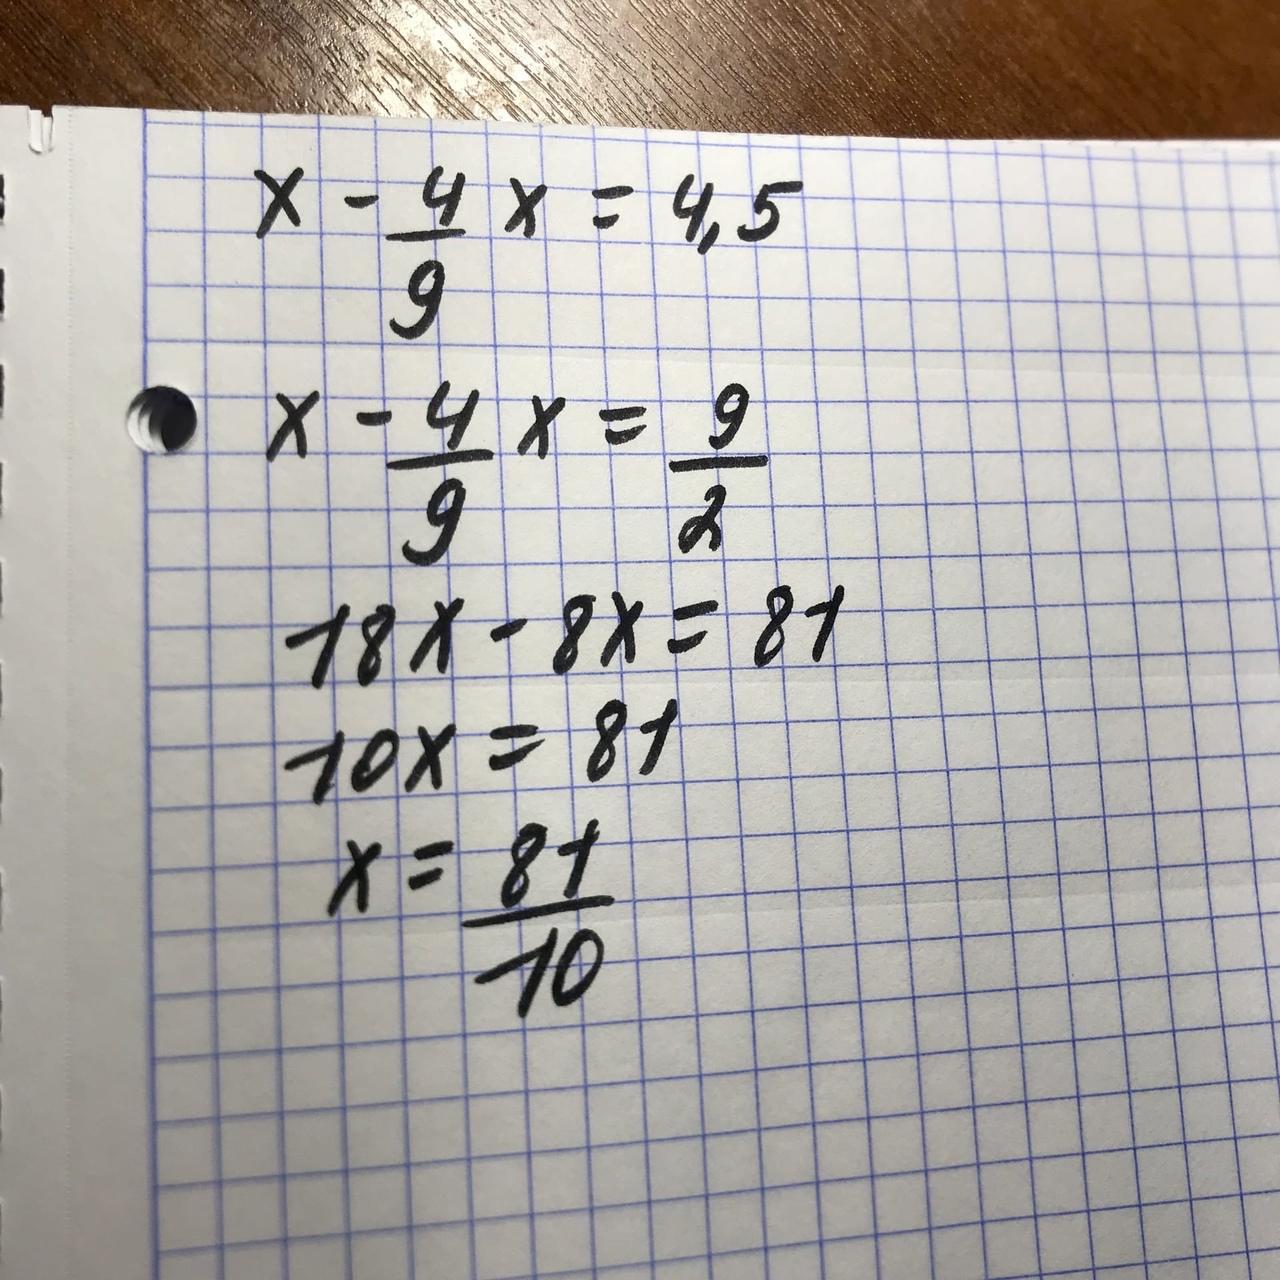 x - 4/9 x = 4,5
x - 4/9 x = 9/2
18x - 8x = 81
10x = 81
x = 81/10